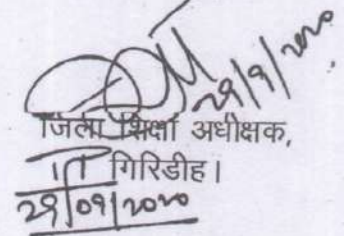 29/9/2020
जिला शिक्षा अधीक्षक,
गिरिडीह।
29/09/2020